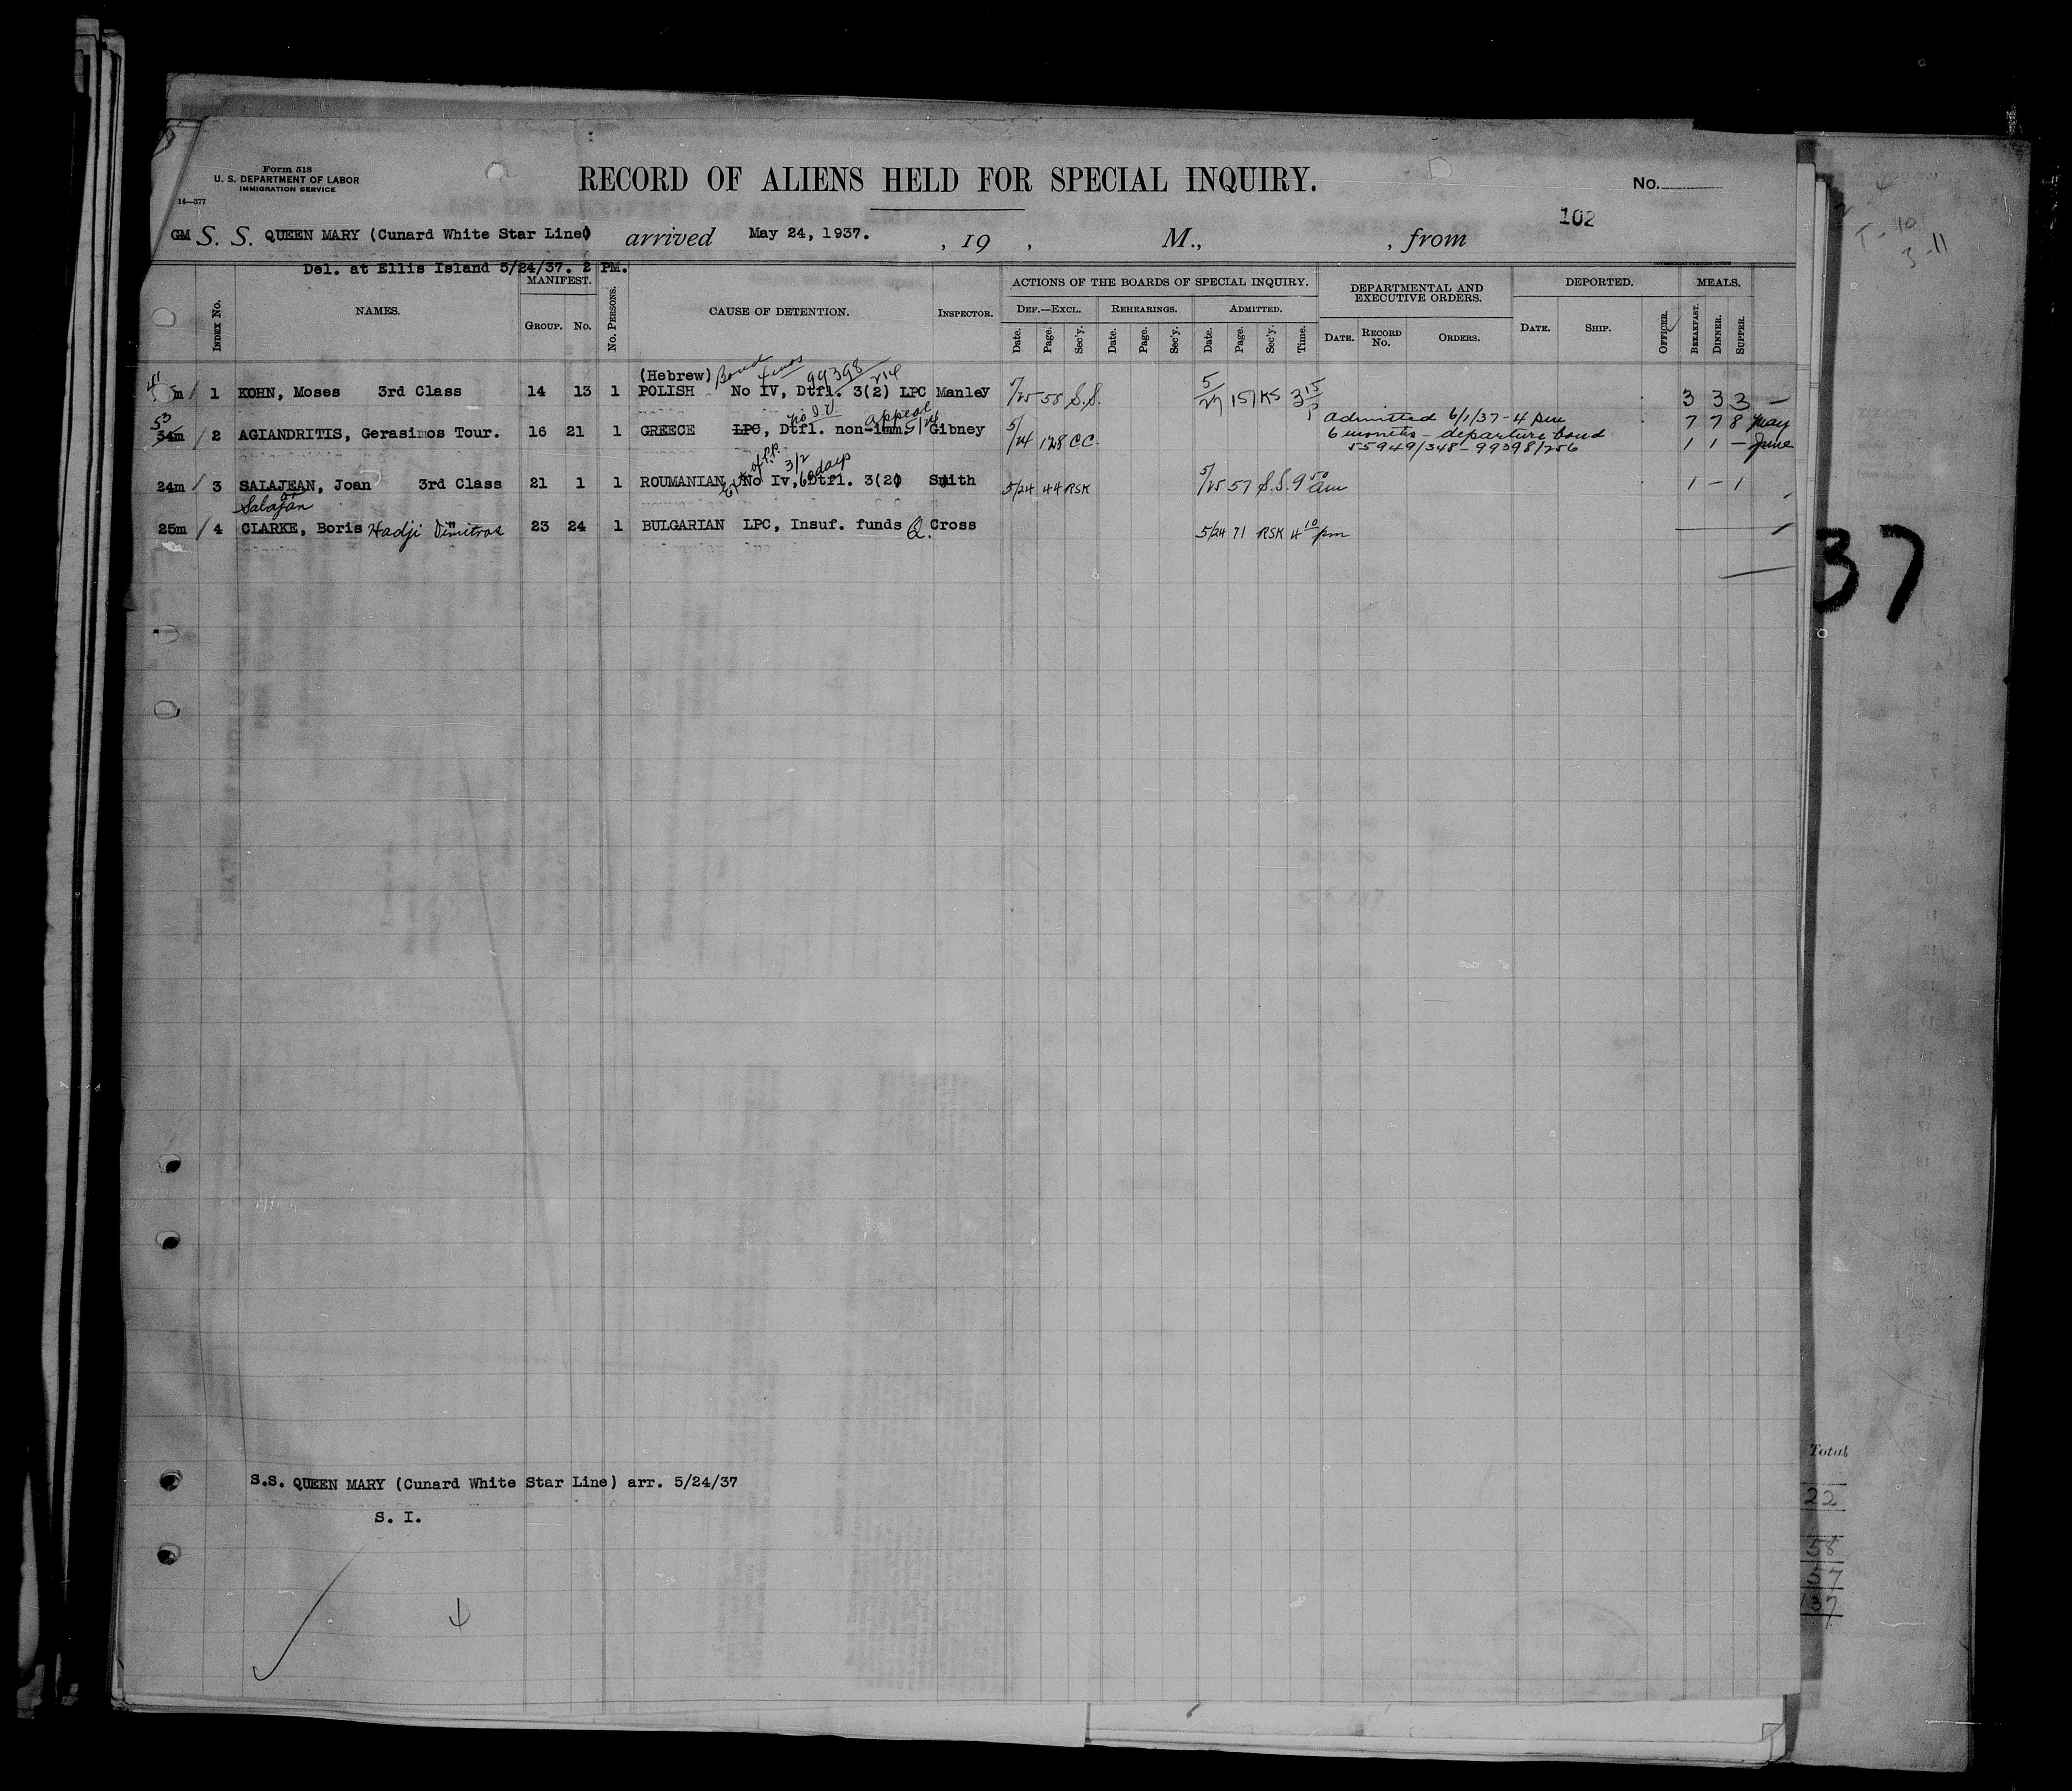 Form 518
U. S. DEPARTMENT OF LABOR
IMMIGRATION SERVICE
14—377
RECORD OF ALIENS HELD FOR SPECIAL INQUIRY.
No.
102
GM S. S. QUEEN MARY (Cunard White Star Line) arrived May 24, 1937. , 19 , M., , from
Del. at Ellis Island 5/24/37. 2 PM.
INDEX NO. NAMES. MANIFEST. GROUP. NO. NO. PERSONS. CAUSE OF DETENTION. INSPECTOR.
ACTIONS OF THE BOARDS OF SPECIAL INQUIRY.
DEF.—EXCL. Date. Page. Sec'y. REHEARINGS. Date. Page. Sec'y. ADMITTED. Date. Page. Sec'y. Time.
DEPARTMENTAL AND EXECUTIVE ORDERS. DATE. RECORD NO. ORDERS.
DEPORTED. DATE. SHIP. OFFICER.
MEALS. BREAKFAST. DINNER. SUPPER.
(Hebrew) Bond 4 mos 99398/214
41 m / 1 KOHN, Moses 3rd Class 14 13 1 POLISH No IV, Dtfl. 3(2) LPC Manley 58 S.S. 5/27 151 KS 3 15 P 3 3 3 —
no I.V. appeal
53 54m / 2 AGIANDRITIS, Gerasimos Tour. 16 21 1 GREECE LPC, Dtfl. non-imm. Gibney 5/24 128 CC. admitted 6/1/37 - 4 pm 7 7 8 May
6 months - departure bond 1 1 — June
55949/348 - 99398/256
Ext of P.P. 3/2 60 days
24m / 3 SALAJEAN, Joan 3rd Class 21 1 1 ROUMANIAN, No Iv, Dtfl. 3(2) Smith 5/24 44 RSK 5/25 57 S.S. 9 50 am 1 — 1
Salajan
25m / 4 CLARKE, Boris Hadji Dimitros 23 24 1 BULGARIAN LPC, Insuf. funds Q. Cross 5/24 71 RSK 4 10 pm
37
S.S. QUEEN MARY (Cunard White Star Line) arr. 5/24/37
S. I.
Total
22
58
57
137